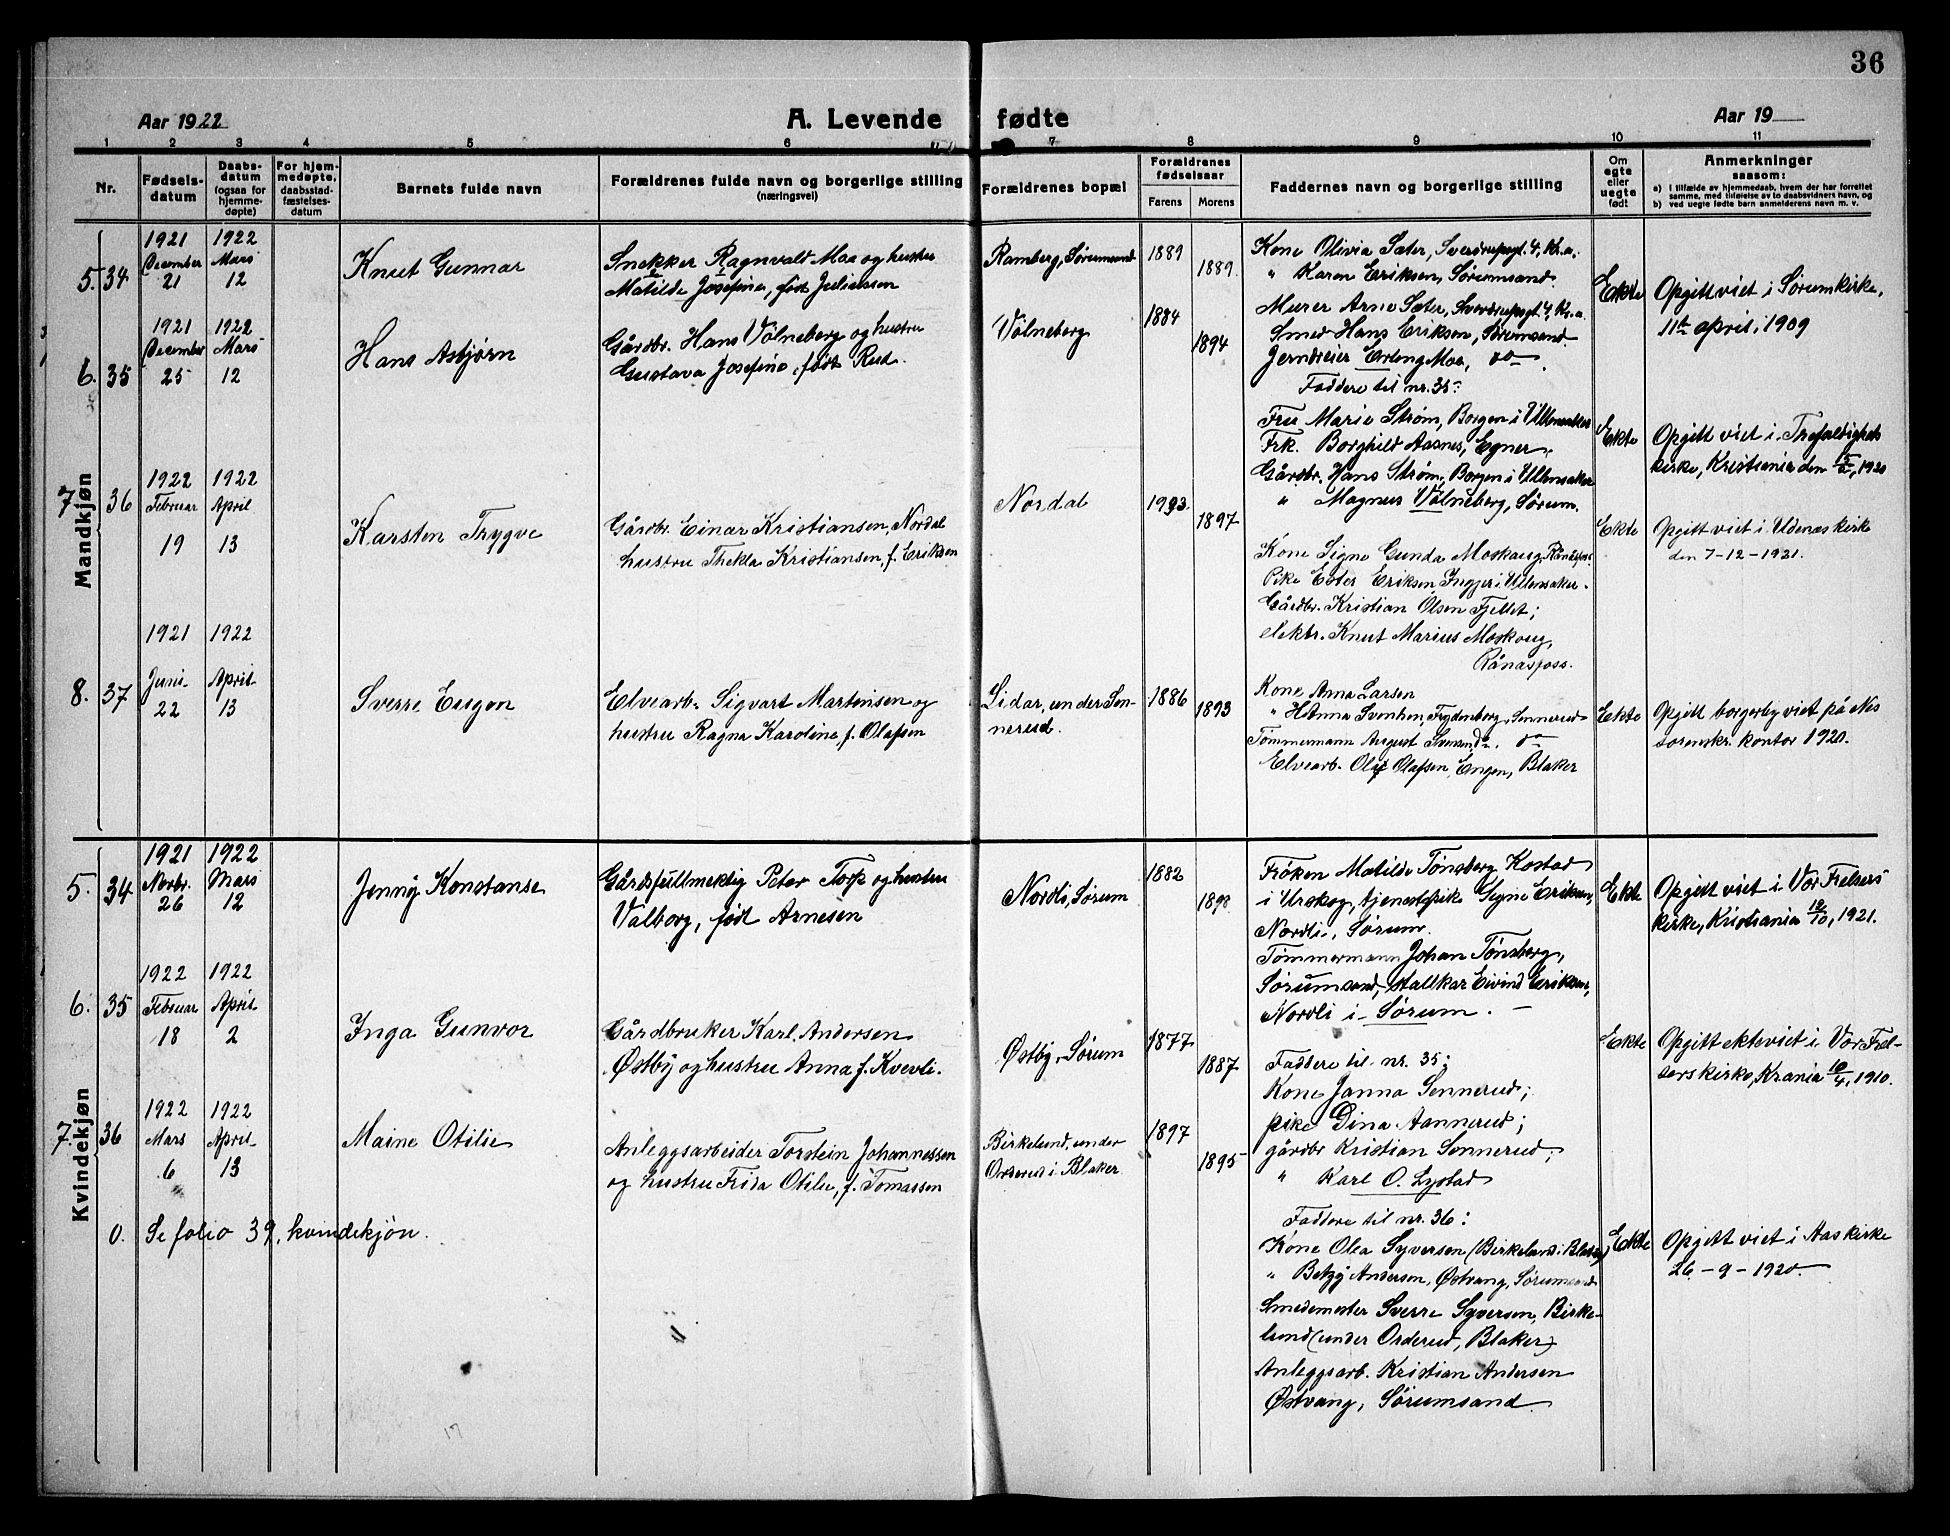 36
Aar 1922
A. Levende fødte
Aar 19
1 2 3 4 5 6 7 8 9 10 11
Nr.
Fødselsdatum
Daabsdatum (ogsaa for hjemmedøpte)
For hjemmedøpte, daabsstadfæstelsesdatum
Barnets fulde navn
Forældrenes fulde navn og borgerlige stilling
(næringsvei)
Forældrenes bopæl
Forældrenes fødselsaar
Farens
Morens
Faddernes navn og borgerlige stilling
Om egte eller uegte født
Anmerkninger
saasom:
a) I tilfælde av hjemmedaab, hvem der har forrettet
samme, med tilføielse av to daabsvidners navn, og
b) ved uegte fødte barn anmelderens navn m. v.
Mandkjøn
5. 34
1921 December 21
1922 Mars 12
Knut Gunnar
Snekker Ragnvald Moa og hustru
Matilde Josefine, født Juliussen
Ramberg, Sørumsand
1889
1889.
Kone Olivia Sæter, Sverdrupsgt. 4, Kr.a.
" Karen Eriksen, Sørumsand.
Murer Arne Sæter, Sverdrupsgt. 4, Kr.a
Smed Hans Eriksen, Sørumsand.
Jerndreier Erling Moa, do
Ekte
Opgitt viet i Sørum kirke,
11te april, 1909
6. 35
1921 December 25
1922 Mars 12
Hans Asbjørn
Gårdbr. Hans Vølneberg og hustru
Gustava Josefine, født Rud.
Vølneberg
1884
1894
Faddere til nr. 35:
Fru Marie Strøm, Borgen i Ullensaker
Frk. Borghild Aasnes, Egner
Gårdbr. Hans Strøm, Borgen i Ullensaker
" Magnus Vølneberg, Sørum.
Ekte
Opgitt viet i Trefoldighets
kirke, Kristiania den 1920
7. 36
1922 Februar 19
1922 April 13
Karsten Trygve
Gårdbr. Einar Kristiansen, Nordal
hustru Thekla Kristiansen, f. Eriksen
Nordal
1993.
1897
Kone Signe Gunda Moskaug, Rånåsfoss
Pike Ester Eriksen, Ingjer i Ullensaker.
Gårdbr. Kristian Olsen Fjellet;
elektr. Knut Marius Moskaug,
Rånåsfoss.
Ekte
Opgitt viet i Udenæs kirke
den 7-12-1921.
8. 37
1921 Juni 22
1922 April 13
Sverre Eugen
Elvearb. Sigvart Martinsen og
hustru Ragna Karoline f. Olafsen
Lidar, under Sennerud.
1886
1893
Kone Anna Larsen
" Hanna Svendsen, Frydenberg, Sennerud
Tømmermann August Svendsen. do
Elvearb. Olaf Olafsen, Engen, Blaker
Ekte
Opgitt borgerlig viet på Nes
sorenskr. kontor 1920.
Kvindekjøn
5. 34
1921 Novbr. 26
1922 Mars 12
Jenny Konstanse
Gårdsfullmektig Peter Torp og hustru
Valborg, født Arnesen
Nordli, Sørum
1882
1898
Frøken Matilde Tønsberg Kostad
i Urskog, tjenestepike Signe Eriksen,
Nordli, Sørum.
Tømmermann Johan Tønsberg,
Sørumsand, stallkar Eivind Eriksen,
Nordli i Sørum.
Ekte
Opgitt viet i Vor Frelsers
kirke, Kristiania 12/10, 1921.
6. 35
1922 Februar 18
1922 April 2
Inga Gunvor
Gårdbruker Karl Andersen
Østby og hustru Anna f. Kvevli.
Østby, Sørum
1877
1887
Faddere til nr. 35:
Kone Janna Sennerud;
pike Dina Aannerud;
gårdbr Kristian Sennerud;
" Karl O. Lystad
Ekte
Opgitt ekteviet i Vor Frelsers
kirke, Krania 10/4, 1910.
7. 36
1922 Mars 6
1922 April 13
Maine Otilie
Anleggsarbeider Torstein Johannessen
og hustru Frida Otilie, f. Tomassen
Birkelund, under
Orderud i Blaker
1897
1895
Faddere til nr. 36:
Kone Olea Syversen (Birkelund i Blaker)
" Betzy Andersen, Østvang, Sørumsand
Smedemester Sverre Syversen, Birkelund
(under Orderud, Blaker)
Anleggsarb. Kristian Andersen
Østvang, Sørumsand
Ekte
Opgitt viet i Aas kirke
26-9-1920.
0. Se folio 39, kvindekjøn.